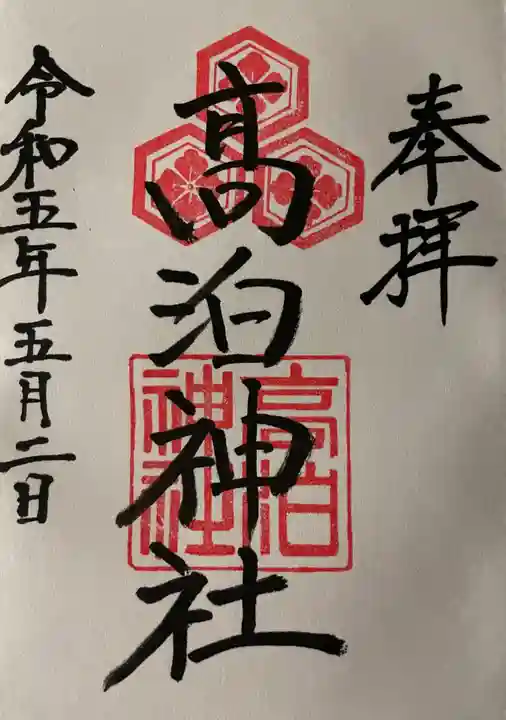 奉拝
髙泊神社
高泊
神社
令和五年五月二日